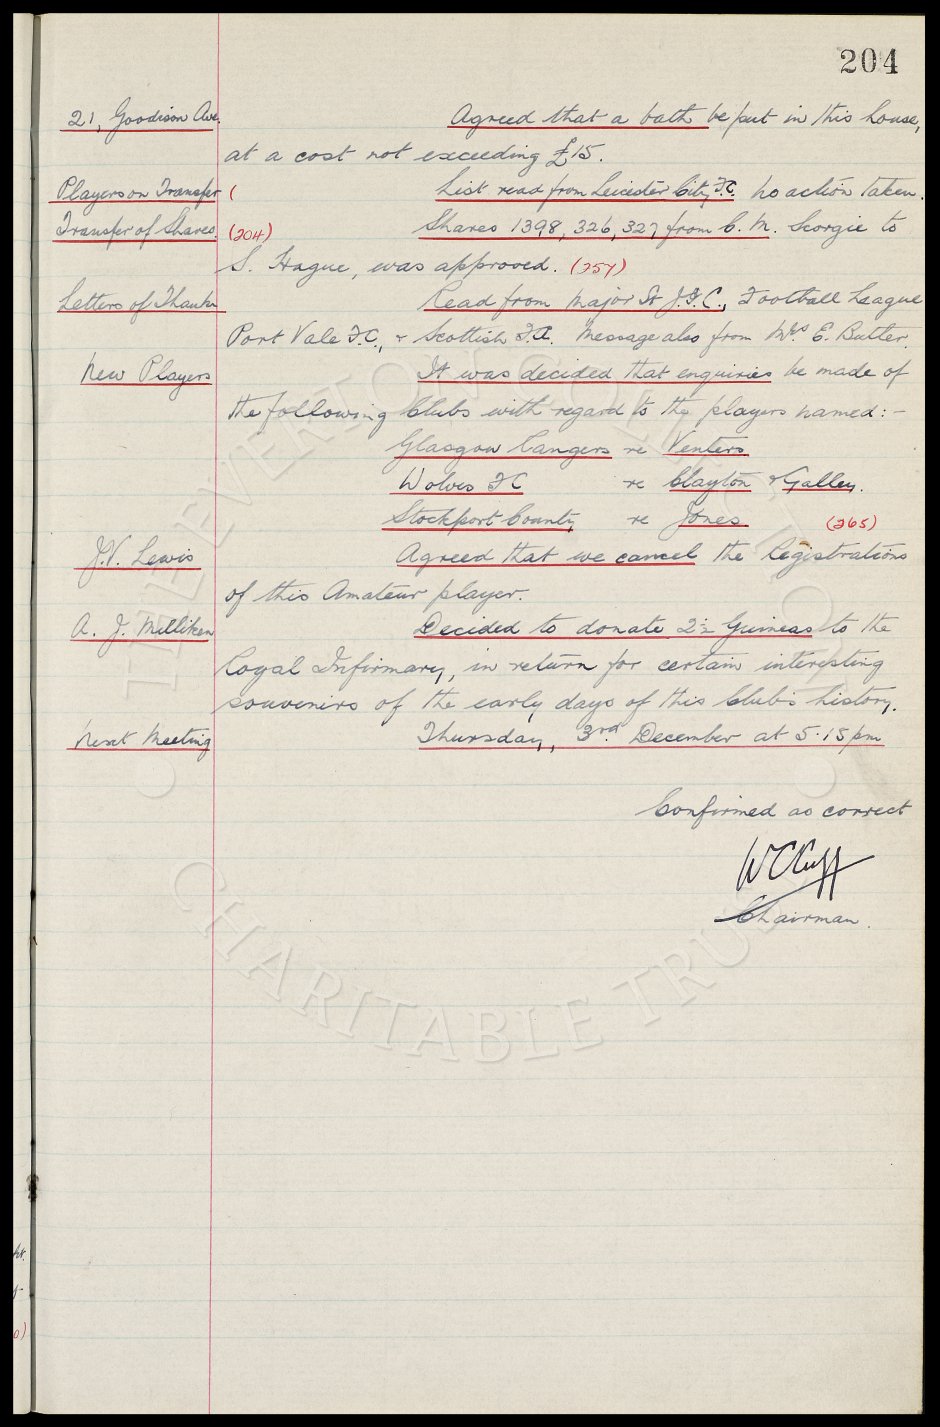 204
21, Goodison Ave. Agreed that a bath be put in this house,
at a cost not exceeding £15.
Players on Transfer ( List read from Leicester City F.C. No action taken.
Transfer of Shares. (204) Shares 1398, 326, 327 from C. M. Scorgie to
S. Hague, was approved. (257)
Letters of Thanks Read from Major St J.F.C., Football League
Port Vale F.C., & Scottish F.A. Message also from Mrs E. Butler.
New Players It was decided that enquiries be made of
the following Clubs with regard to the players named:-
Glasgow Rangers re Venters
Wolves FC re Clayton & Galley.
Stockport County re Jones (265)
J.V. Lewis Agreed that we cancel the Registrations
of this Amateur player.
A. J. Milliken Decided to donate 2½ Guineas to the
Royal Infirmary, in return for certain interesting
souvenirs of the early days of this Club's history.
Next Meeting Thursday, 3rd December at 5.15pm
Confirmed as correct
WCCuff
Chairman.
THE EVERTON COLLECTION
CHARITABLE TRUST